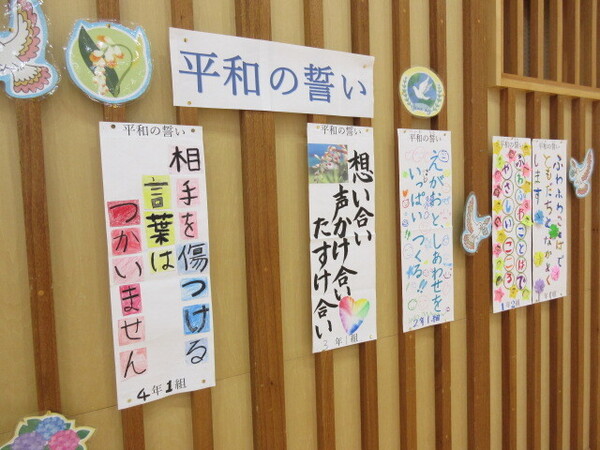 平和の誓い
平和の誓い
相手を傷つける
言葉は
つかいません
4年1組
平和の誓い
想い合い
声かけ合い
たすけ合い
3年1組
平和の誓い
えがおと、しあわせを
いっぱい つくる!!
2年1組
平和の誓い
ふわふわことばで
やさしいこころ
1年2組
平和の誓い
ふわふわことばで
ともだちとなかよく
します